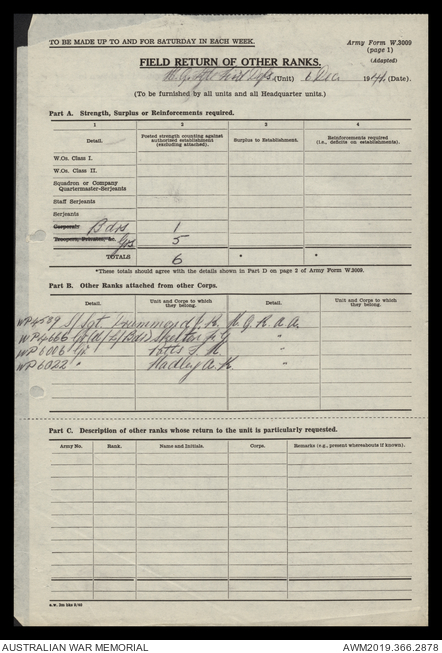 TO BE MADE UP TO AND FOR SATURDAY IN EACH WEEK.
Army Form W.3009
(page 1)
(Adapted)
FIELD RETURN OF OTHER RANKS.
(Unit) 6 Dec 1944. (Date).
(To be furnished by all units and all Headquarter units.)
Part A. Strength, Surplus or Reinforcements required.
1 2 3 4
Detail. Posted strength counting against authorized establishment (excluding attached). Surplus to Establishment. Reinforcements required (i.e., deficits on establishments).
W.Os. Class I.
W.Os. Class II.
Squadron or Company Quartermaster-Serjeants
Staff Serjeants
Serjeants
Corporals Bdrs 1
Troopers, Privates, &c. Gnrs 5
TOTALS 6 * *
*These totals should agree with the details shown in Part D on page 2 of Army Form W.3009.
Part B. Other Ranks attached from other Corps.
Detail. Unit and Corps to which they belong. Detail. Unit and Corps to which they belong.
WP4509 S/Sgt Drummond J. R. H.Q. R.A.A.
WP4666 Skelton J. G. "
WP6006 Potts J. M. "
WP6022 " Hadley A. K.
Part C. Description of other ranks whose return to the unit is particularly requested.
Army No. Rank. Name and Initials. Corps. Remarks (e.g., present whereabouts if known).
AUSTRALIAN WAR MEMORIAL
AWM2019.366.2878